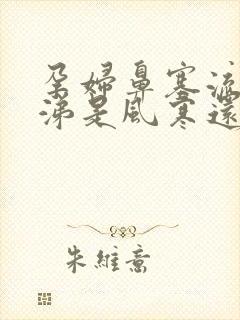 孕婦鼻塞流
涕是風寒還
朱維嵩